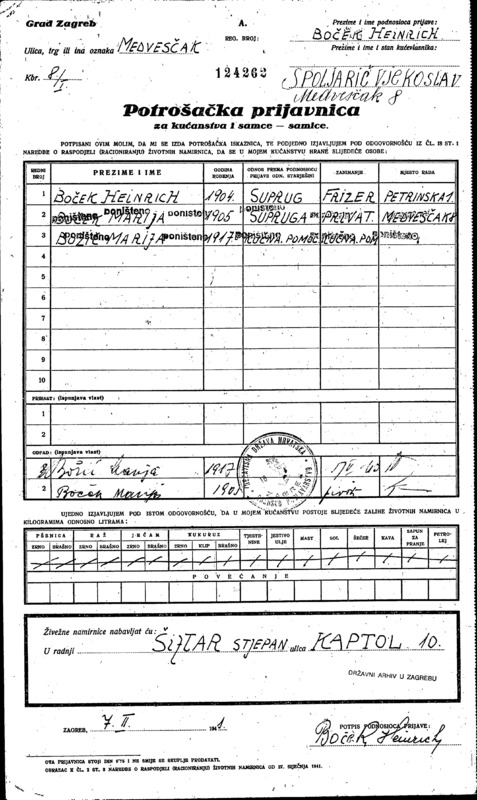 Grad Zagreb
A.
Prezime i ime podnosioca prijave:
BOČEK HEINRICH
Ulica, trg ili ina oznaka MEDVESČAK
REG. BROJ:
Prezime i ime i stan kućevlasnika:
Kbr. 8/I
124262
ŠPOLJARIČ VJEKOSLAV
Medveščak 8
Potrošačka prijavnica
za kućanstva i samce — samice.
POTPISANI OVIM MOLIM, DA MI SE IZDA POTROŠAČKA ISKAZNICA, TE PODJEDNO IZJAVLJUJEM POD ODGOVORNOŠĆU IZ ČL. 18 ST. 1
NAREDBE O RASPODJELI (RACIONIRANJU) ŽIVOTNIH NAMIRNICA, DA SE U MOJEM KUĆANSTVU HRANE SLIJEDEĆE OSOBE:
REDNI BROJ
PREZIME I IME
GODINA ROĐENJA
ODNOS PREMA PODNOSIOCU PRIJAVE ODN. STARJEŠINI
ZANIMANJE
MJESTO RADA
1 BOČEK HEINRICH 1904. SUPRUG FRIZER PETRINSKA 1.
2 BOČEK MARIJA poništeno 1905 SUPRUGA PRIVAT. MEDVEŠČAK 8
3 BOŽIĆ MARIJA poništeno 1917 KUĆNA POMOĆ. KUĆNA POM
4
5
6
7
8
9
10
PRIRAST: (ispunjava vlast)
1
2
ODPAD: (ispunjava vlast)
Božić Marija 1917
2 Boček Marija
NEZAVISNA DRŽAVA HRVATSKA
UJEDNO IZJAVLJUJEM POD ISTOM ODGOVORNOŠĆU, DA U MOJEM KUĆANSTVU POSTOJE SLIJEDEĆE ZALIHE ŽIVOTNIH NAMIRNICA U
KILOGRAMIMA ODNOSNO LITRAMA:
PŠENICA RAŽ JEČAM KUKURUZ TJESTENINE JESTIVO ULJE MAST SOL ŠEĆER KAVA SAPUN ZA PRANJE PETROLEJ
ZRNO BRAŠNO ZRNO BRAŠNO ZRNO BRAŠNO ZRNO KLIP BRAŠNO
POVEĆANJE
Živežne namirnice nabavljat ću:
U radnji ŠIFTAR STJEPAN ulica KAPTOL 10.
DRŽAVNI ARHIV U ZAGREBU
ZAGREB, 7. II. 1941.
POTPIS PODNOSIOCA PRIJAVE:
Boček Heinrich
OVA PRIJAVNICA STOJI DIN 0'75 I NE SMIJE SE SKUPLJE PRODAVATI.
OBRAZAC K ČL. 2 ST. 2 NAREDBE O RASPODJELI (RACIONIRANJU) ŽIVOTNIH NAMIRNICA OD 27. SIJEČNJA 1941.